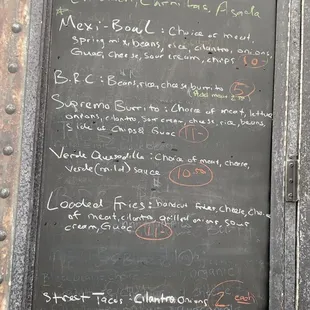 Chicken, Carnitas, Asada
Mexi-Bowl: Choice of meat
spring mix, beans, rice, cilantro, onions,
Guac, cheese, sour cream, chips 10-
B.R.C: Beans, rice, cheese, burrito 5
(Add meat 2
Supremo Burrito: Choice of meat, lettuce
onions, cilantro, sour cream, cheese, rice, beans,
Side of Chips & Guac 11-
Verde Quesadilla: Choice of meat, cheese,
Verde (mild) sauce 10.50
Loaded Fries: fries, cheese, choice
of meat, cilantro, grilled onions, sour
cream, Guac 11-
Street Tacos: Cilantro, Onions 2 each